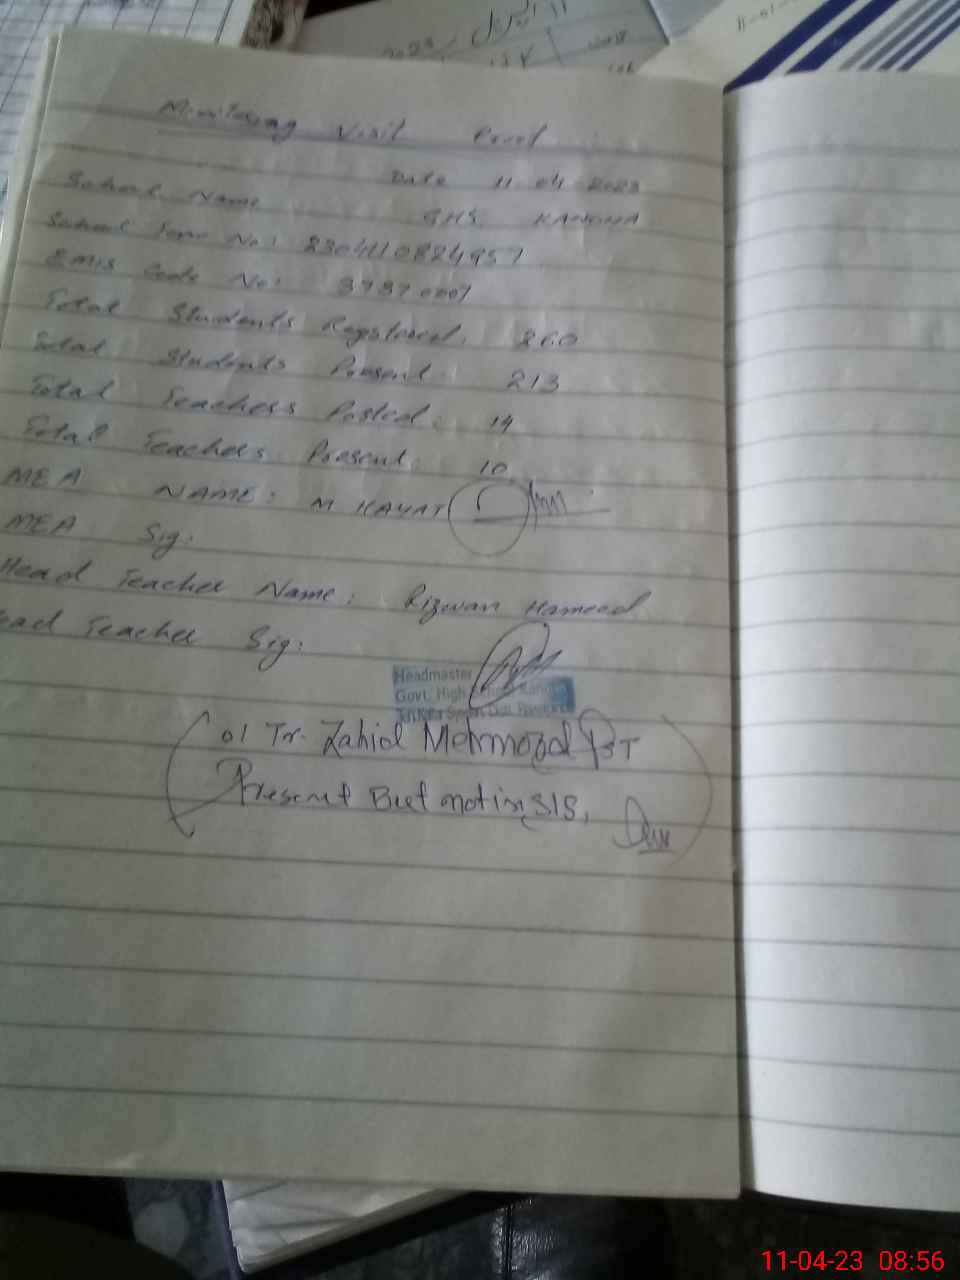 11 اپریل 2023
Monitoring Visit Proof
Date 11 04 2023
School Name GHS
School No:
EMIS Code No:
Total Students Registered. 260
Total Students Present. 213
Total Teachers Posted: 14
Total Teachers Present. 10
MEA NAME: M HAYAT
MEA Sig:
Head Teacher Name: Rizwan Hameed
Head Teacher Sig:
Headmaster
Govt. High
01 Tr. Zahid Mehmood PST
Present But not in SIS,
11-04-23 08:56